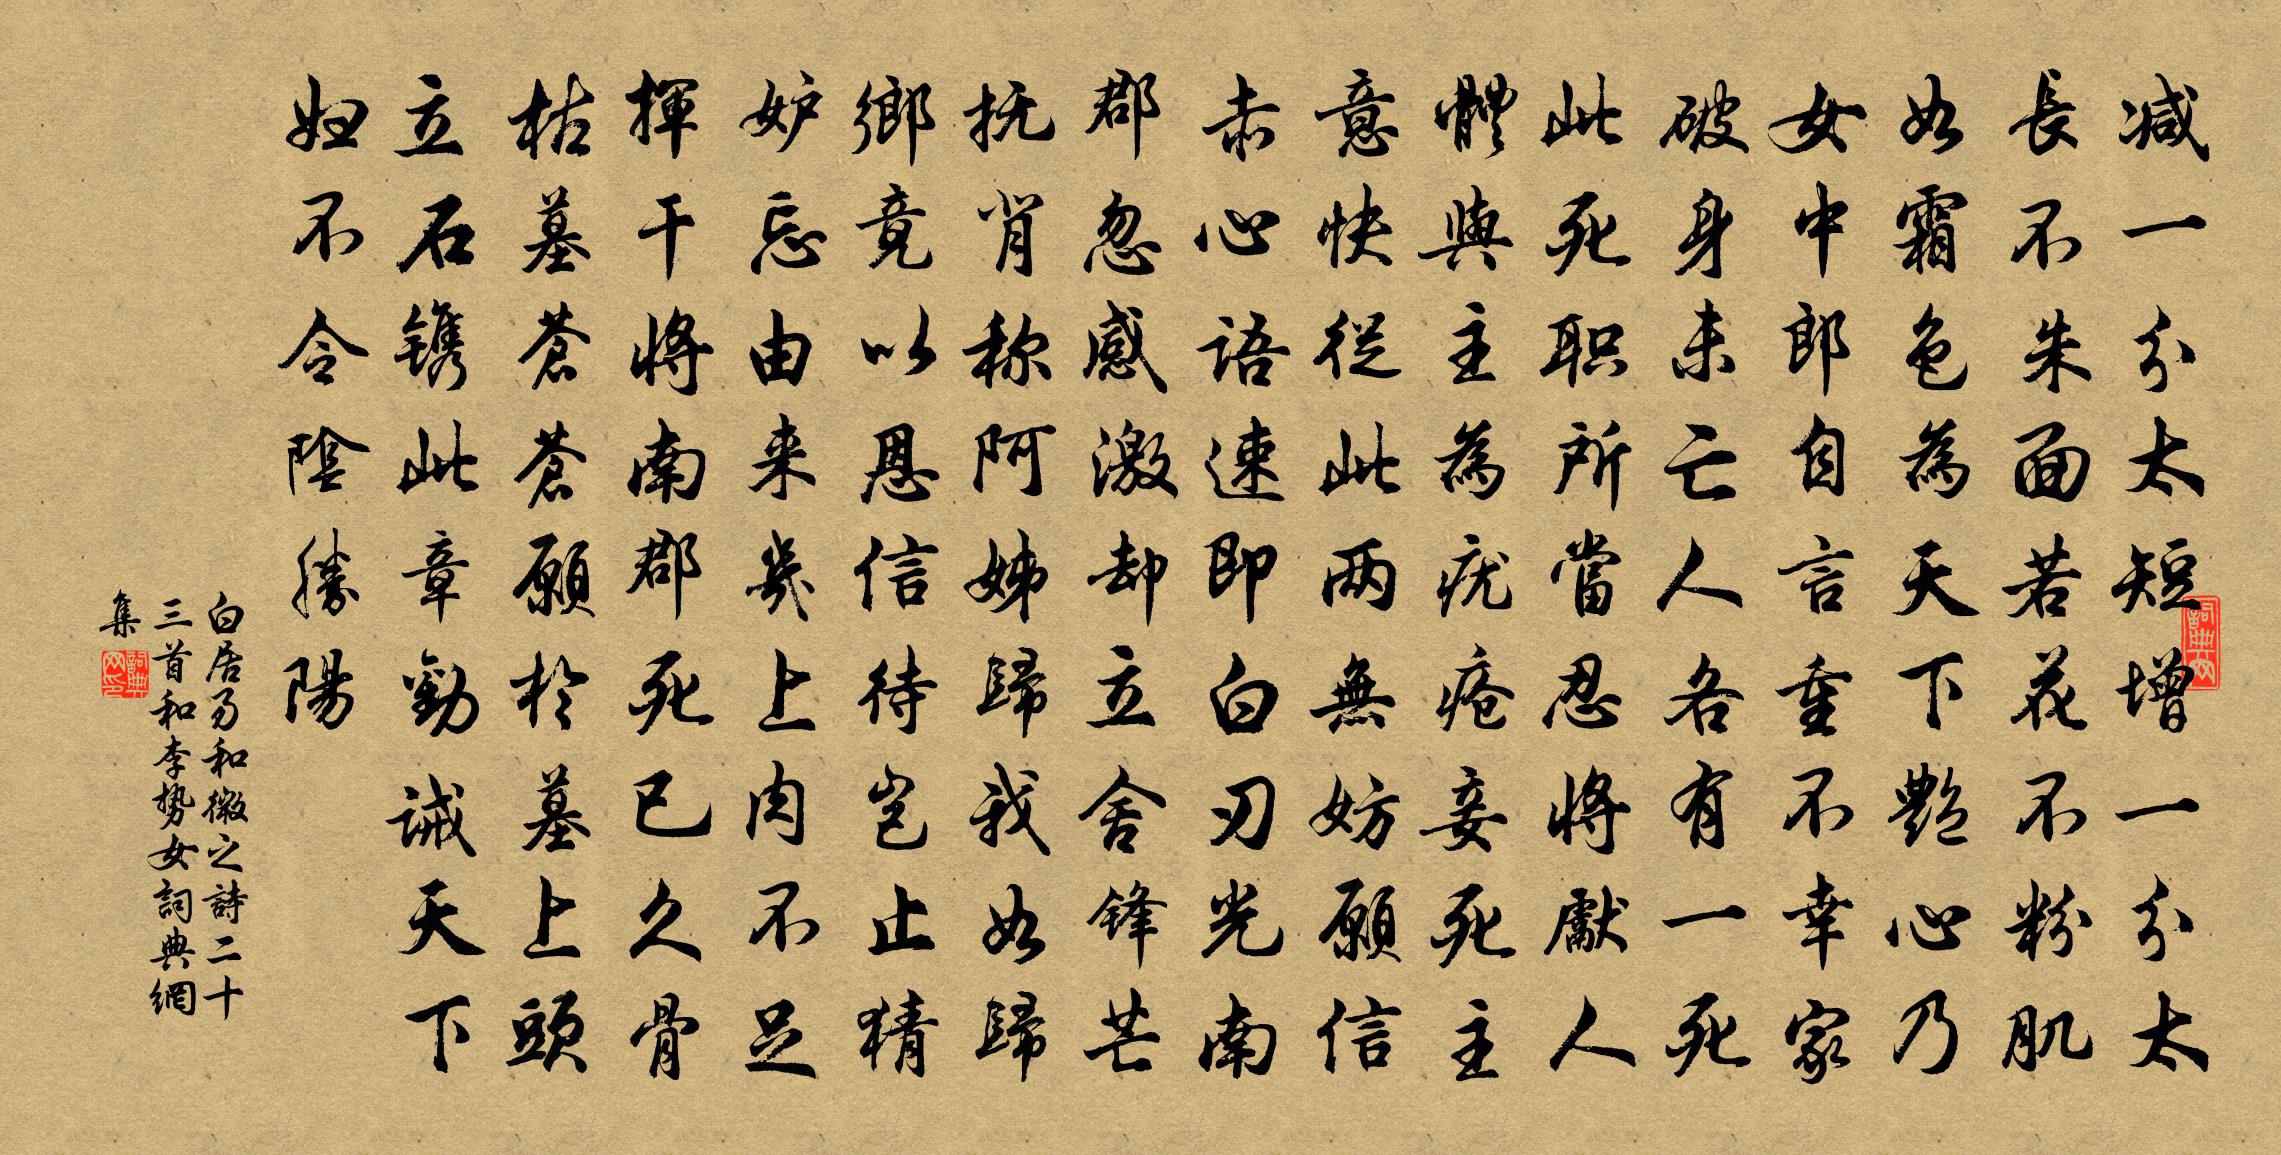 减一分太短增一分太
長不朱面若花不粉肌
如霜色為天下艷心乃
女中郎自言重不幸家
破身未亡人各有一死
此死职所當忍將獻人
體與主為疣疮妾死主
意快從此两無妨願信
赤心語速即白刃光南
郡忽感激却立舍锋芒
抚肖称阿姊歸我如歸
鄉竟以恩信待岂止猜
妒忘由来几上肉不足
揮干將南郡死已久骨
枯墓蒼蒼願於墓上頭
立石镌此章勸诫天下
妇不令陰勝陽
白居易和微之詩二十
三首和李势女詞典網
集
詞典网
詞典网印